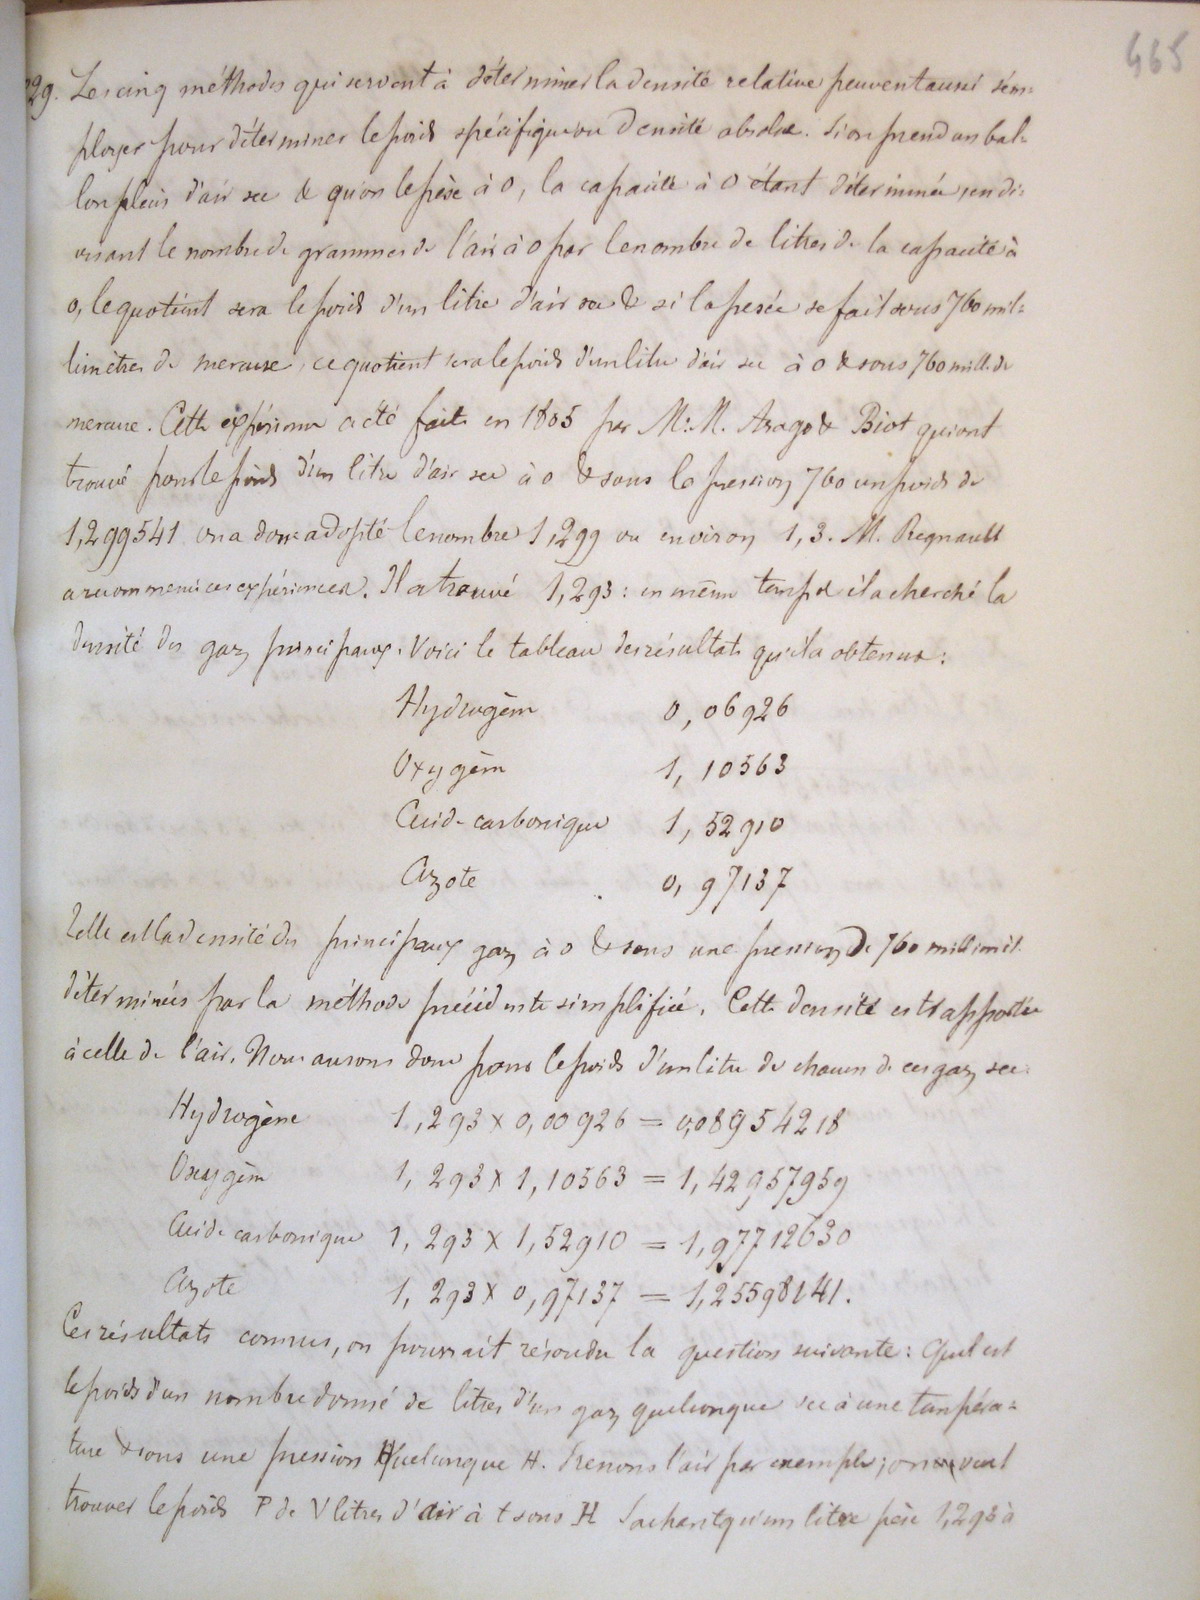 465
229. Les cinq méthodes qui servent à déterminer la densité relative peuvent aussi s'em-
ployer pour déterminer le poids spécifique ou densité absolue. Si on prend un bal-
lon plein d'air sec & qu'on le pèse à 0, la capacité à 0 étant déterminée, en di-
visant le nombre de grammes de l'air à 0 par le nombre de litres de la capacité à
0, le quotient sera le poids d'un litre d'air sec & si la pesée se fait sous 760 mil-
limètres de mercure, ce quotient sera le poids d'un litre d'air sec à 0 & sous 760 mill. de
mercure. Cette expérience a été faite en 1805 par M.M. Arago & Biot qui ont
trouvé pour le poids d'un litre d'air sec à 0 & sous la pression 760 un poids de
1,299541 on a donc adopté le nombre 1,299 ou environ 1,3. M. Regnault
a recommencé ces expériences. Il a trouvé 1,293 : en même temps il a cherché la
densité des gaz principaux. Voici le tableau des résultats qu'il a obtenus :
Hydrogène 0,06926
Oxygène 1,10563
Acide carbonique 1,52910
Azote 0,97137
Telle est la densité des principaux gaz à 0 & sous une pression de 760 millimèt.
déterminés par la méthode précédente simplifiée. Cette densité est rapportée
à celle de l'air. Nous aurons donc pour le poids d'un litre de chacun de ces gaz sec:
Hydrogène 1,293 x 0,00926 = 0,08954218
Oxygène 1,293 x 1,10563 = 1,42957959
Acide carbonique 1,293 x 1,52910 = 1,97712630
Azote 1,293 x 0,97137 = 1,25598141.
Ces résultats connus, on pourrait résoudre la question suivante : Quel est
le poids d'un nombre donné de litres d'un gaz quelconque sec à une tempéra-
ture & sous une pression quelconque H. Prenons l'air par exemple ; on veut
trouver le poids P de V litres d'air à t sous H Sachant qu'un litre pèse 1,293 à